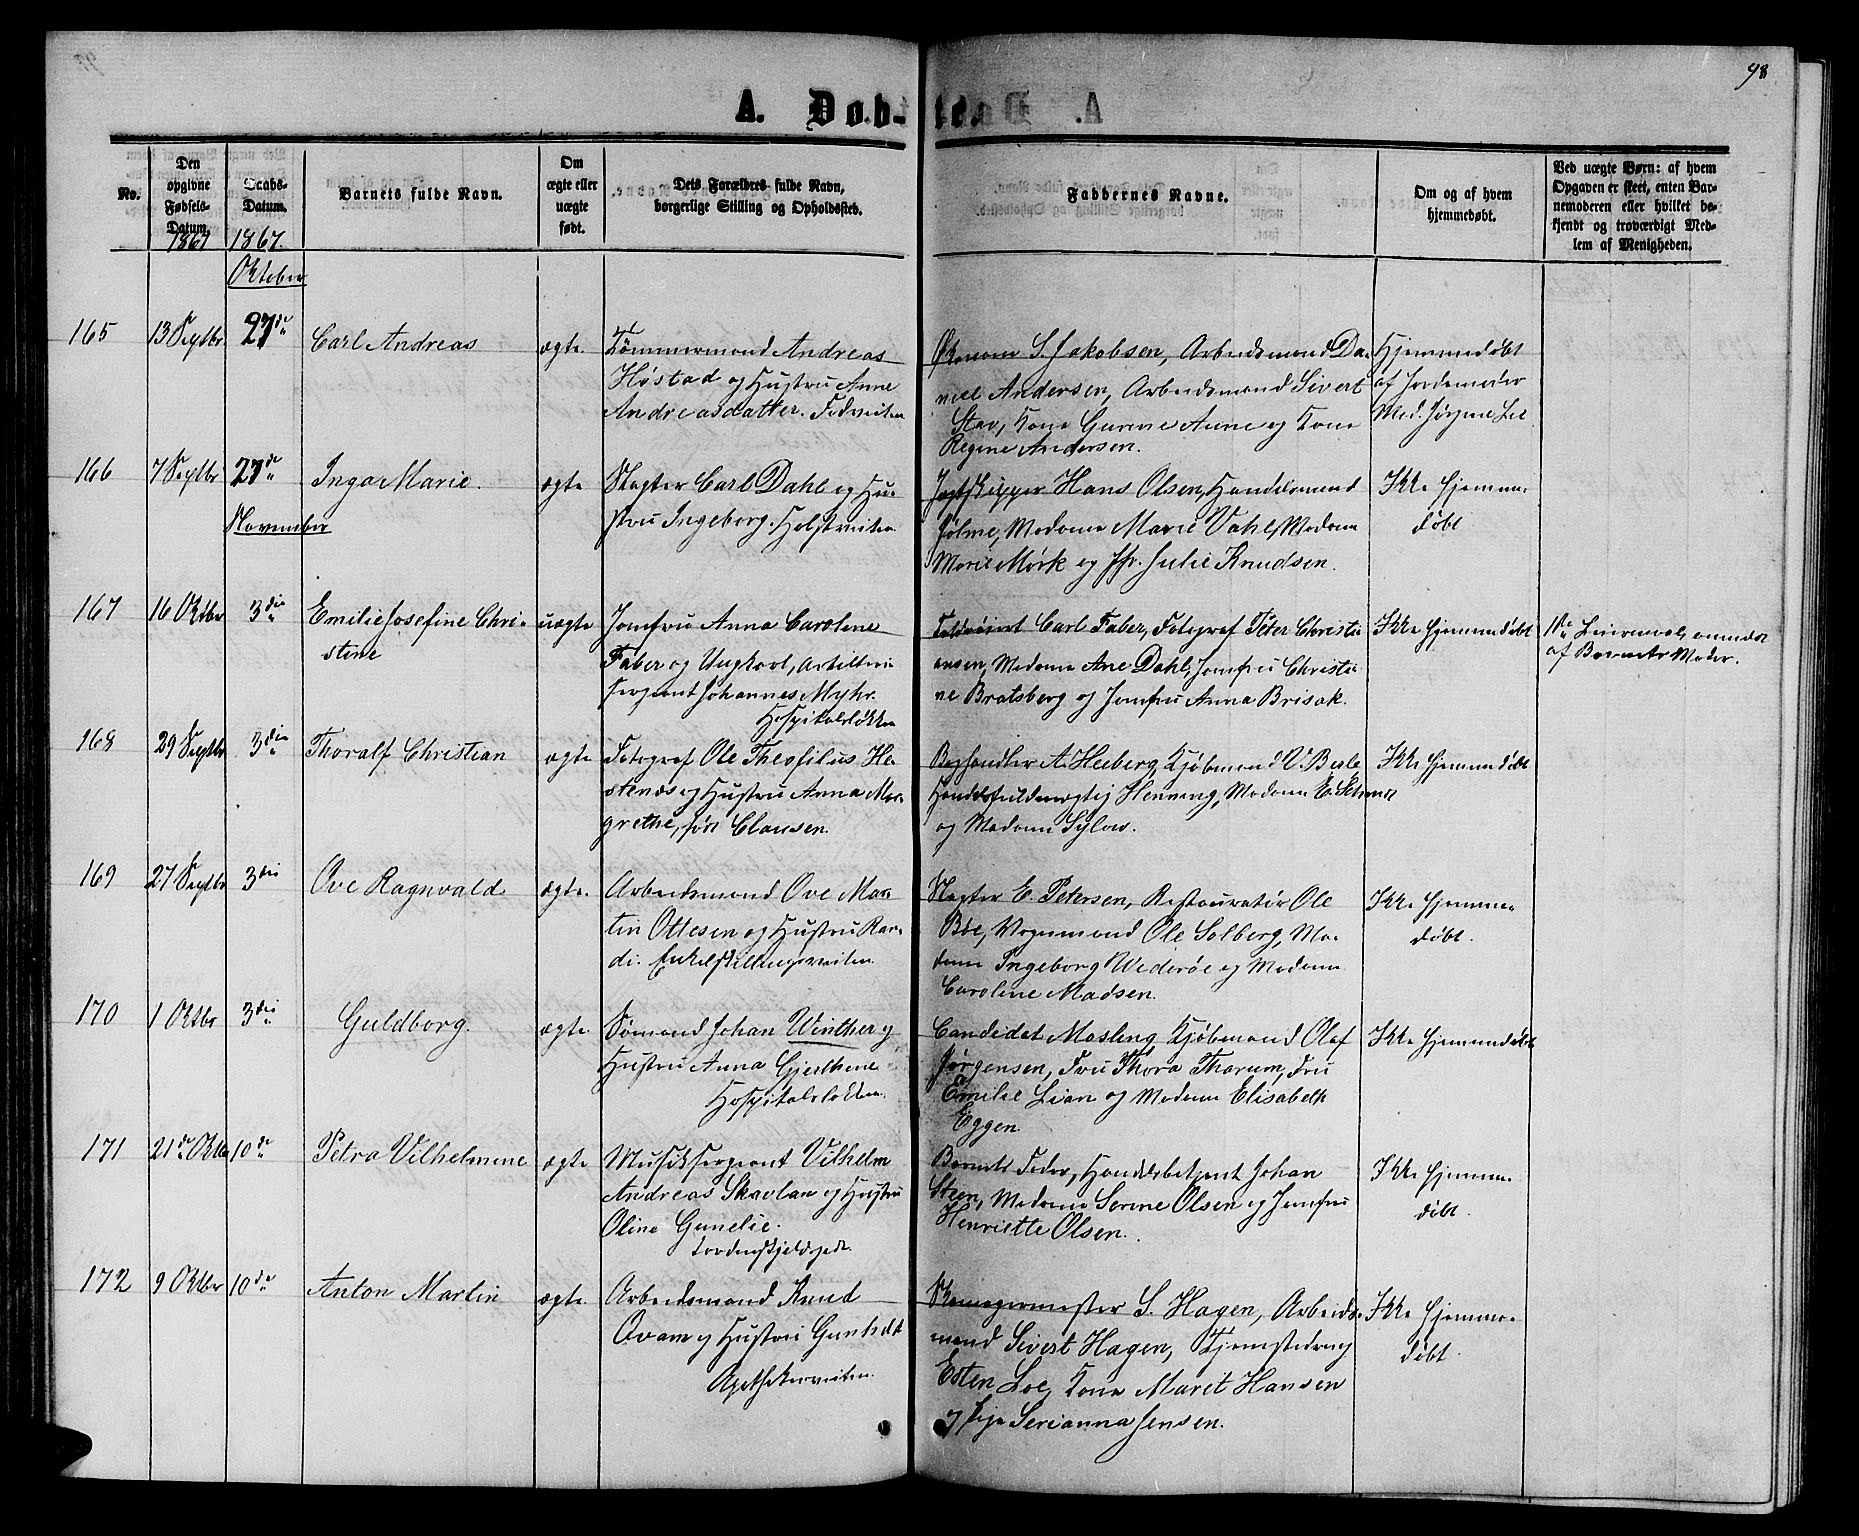 98
A. Døb-
te.
No.
Den
opgivne
Fødsels-
Datum.
1867
Daabs-
Datum.
1867.
Barnets fulde Navn.
Om
ægte eller
uægte
født.
Dets Forældres fulde Navn,
borgerlige Stilling og Opholdssted.
Faddernes Navne.
Om og af hvem
hjemmedøbt.
Ved uægte Børn: af hvem
Opgaven er skeet, enten Bar-
nemoderen eller hvilket be-
kjendt og troværdigt Med-
lem af Menigheden.
Oktober
165
13 Septbr
27de
Carl Andreas
ægte.
Tømmermand Andreas
Høstad og Hustru Anne
Andreasdatter.
S. Jakobsen, Arbeidsmand Da-
niel Andersen, Arbeidsmand Sivert
Stav, Kone Gurine Aune og Kone
Regine Andersen.
Hjemmedøbt
af Jordemoder
Mad. Jørgine Lie
166
7 Septbr
27de
Inga Marie.
ægte
Slagter Carl Dahl og Hu-
stru Ingeborg.
Jagtskipper Hans Olsen, Handelsmand
Jølme, Madame Marie Vahl, Madame
Marie Mørk og Jfr. Julie Knudsen.
Ikke hjemme-
døbt
November
167
16 Oktbr
3die
Emilie Josefine Chri-
stine
uægte
Jomfru Anna Caroline
Faber og Ungkarl, Artilleri
sergeant Johannes Myhr.
Hospitalsløkken
Carl Faber, Fotograf Peter Christi-
ansen, Madame Ane Dahl, Jomfru Christi-
ne Bratsberg og Jomfru Anna Brisak.
Ikke hjemmedøbt
af Barnets Moder.
168
29 Septbr
3die
Thoralf Christian
ægte
Fotograf Ole Theofilus He-
stenes og Hustru Anna Mar-
grethe, født Clausen.
Boghandler A. Heiberg, Kjøbmand V. Berle
Handelsfuldmægtig Henning, Madame E. Schmidt
og Madame Sylow.
Ikke hjemmedøbt
169
27 Septbr
3die
Ove Ragnvald
ægte.
Arbeidsmand Ove Mar-
tin Ottesen og Hustru Ran-
di. Enkeltskillingsveiten
Slagter E. Petersen, Restauratør Ole
Böe, Vognmand Ole Solberg, Ma-
dame Ingeborg Wederöe og Madame
Caroline Madsen.
Ikke hjemme-
døbt.
170
1 Oktbr
3die
Guldborg.
ægte
Sømand Johan Winther og
Hustru Anna Gjerthine
Hospitalsløkken.
Candidat Mosling, Kjøbmand Olaf
Jørgensen, Fru Thora Tharum, Fru
Emilie Lian og Madame Elisabeth
Eggen.
Ikke hjemmedøbt
171
21de Oktbr
10de
Petra Vilhelmine
ægte
Musiksergeant Vilhelm
Andreas Skavlan og Hustru
Oline Gunelie.
Barnets Fader, Handelsbetjent Johan
Steen, Madame Serine Olsen og Jomfru
Henriette Olsen.
Ikke hjemme-
døbt.
172
9 Oktbr
10de
Anton Martin
ægte.
Arbeidsmand Knud
Ovam og Hustru Gunhild
Apothekerveiten.
Skomagermester S. Hagen, Arbeids-
mand Sivert Hagen,
Esten Loe, Kone Marit Hansen
og Pige Serianna Jensen.
Ikke hjemme-
døbt.